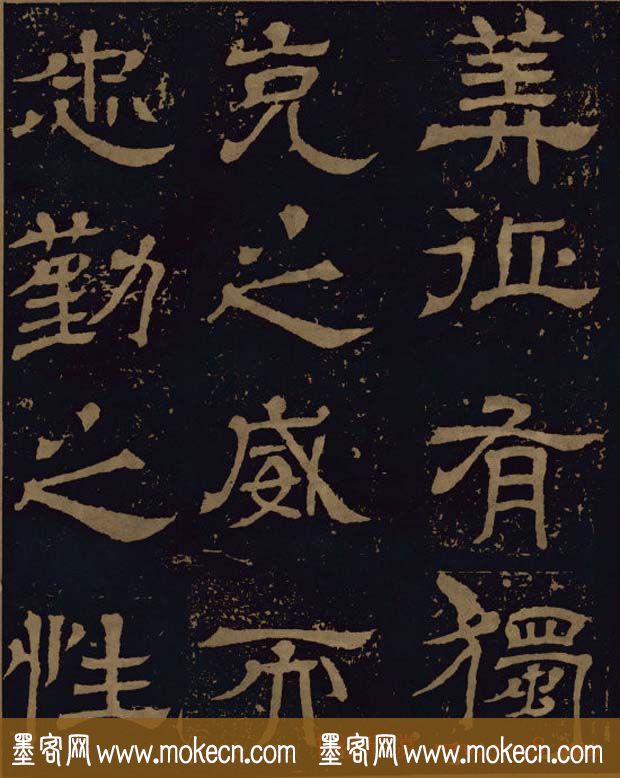 征有獨
克之威而
忠勤之性
墨客网 www.mokecn.com 墨客网 www.mokecn.com